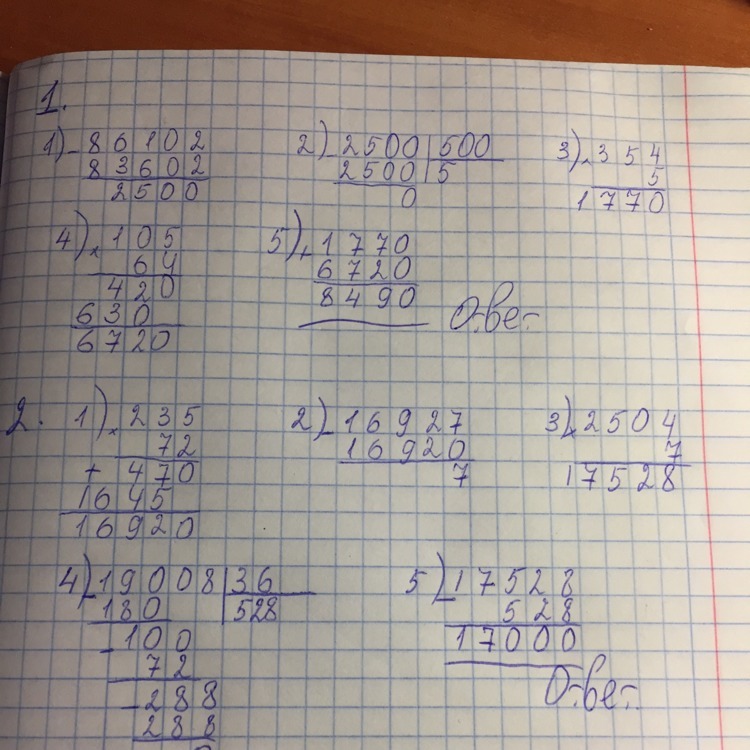 1.
1) - 86102
83602
2500
2) - 2500 | 500
2500 | 5
0
3) × 354
5
1770
4) × 105
64
420
630
6720
5) + 1770
6720
8490
Ответ
2. 1) × 235
72
+ 470
1645
16920
2) - 16927
16920
7
3) × 2504
7
17528
4) - 19008 | 36
180 | 528
- 100
72
- 288
288
0
5) - 17528
528
17000
Ответ